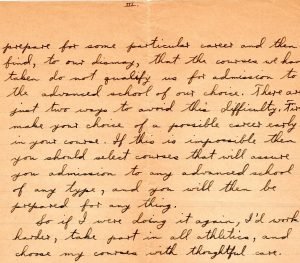 III.
prepare for some particular career and then
find, to our dismay, that the courses we have
taken do not qualify us for admission to
the advanced school of our choice. There are
just two ways to avoid this difficulty. First
make your choice of a possible career early
in your course. If this is impossible then
you should select courses that will assure
you admission to any advanced school
of any type, and you will then be
prepared for any thing.
So if I were doing it again, I'd work
harder, take part in all athletics, and
choose my courses with thoughtful care.